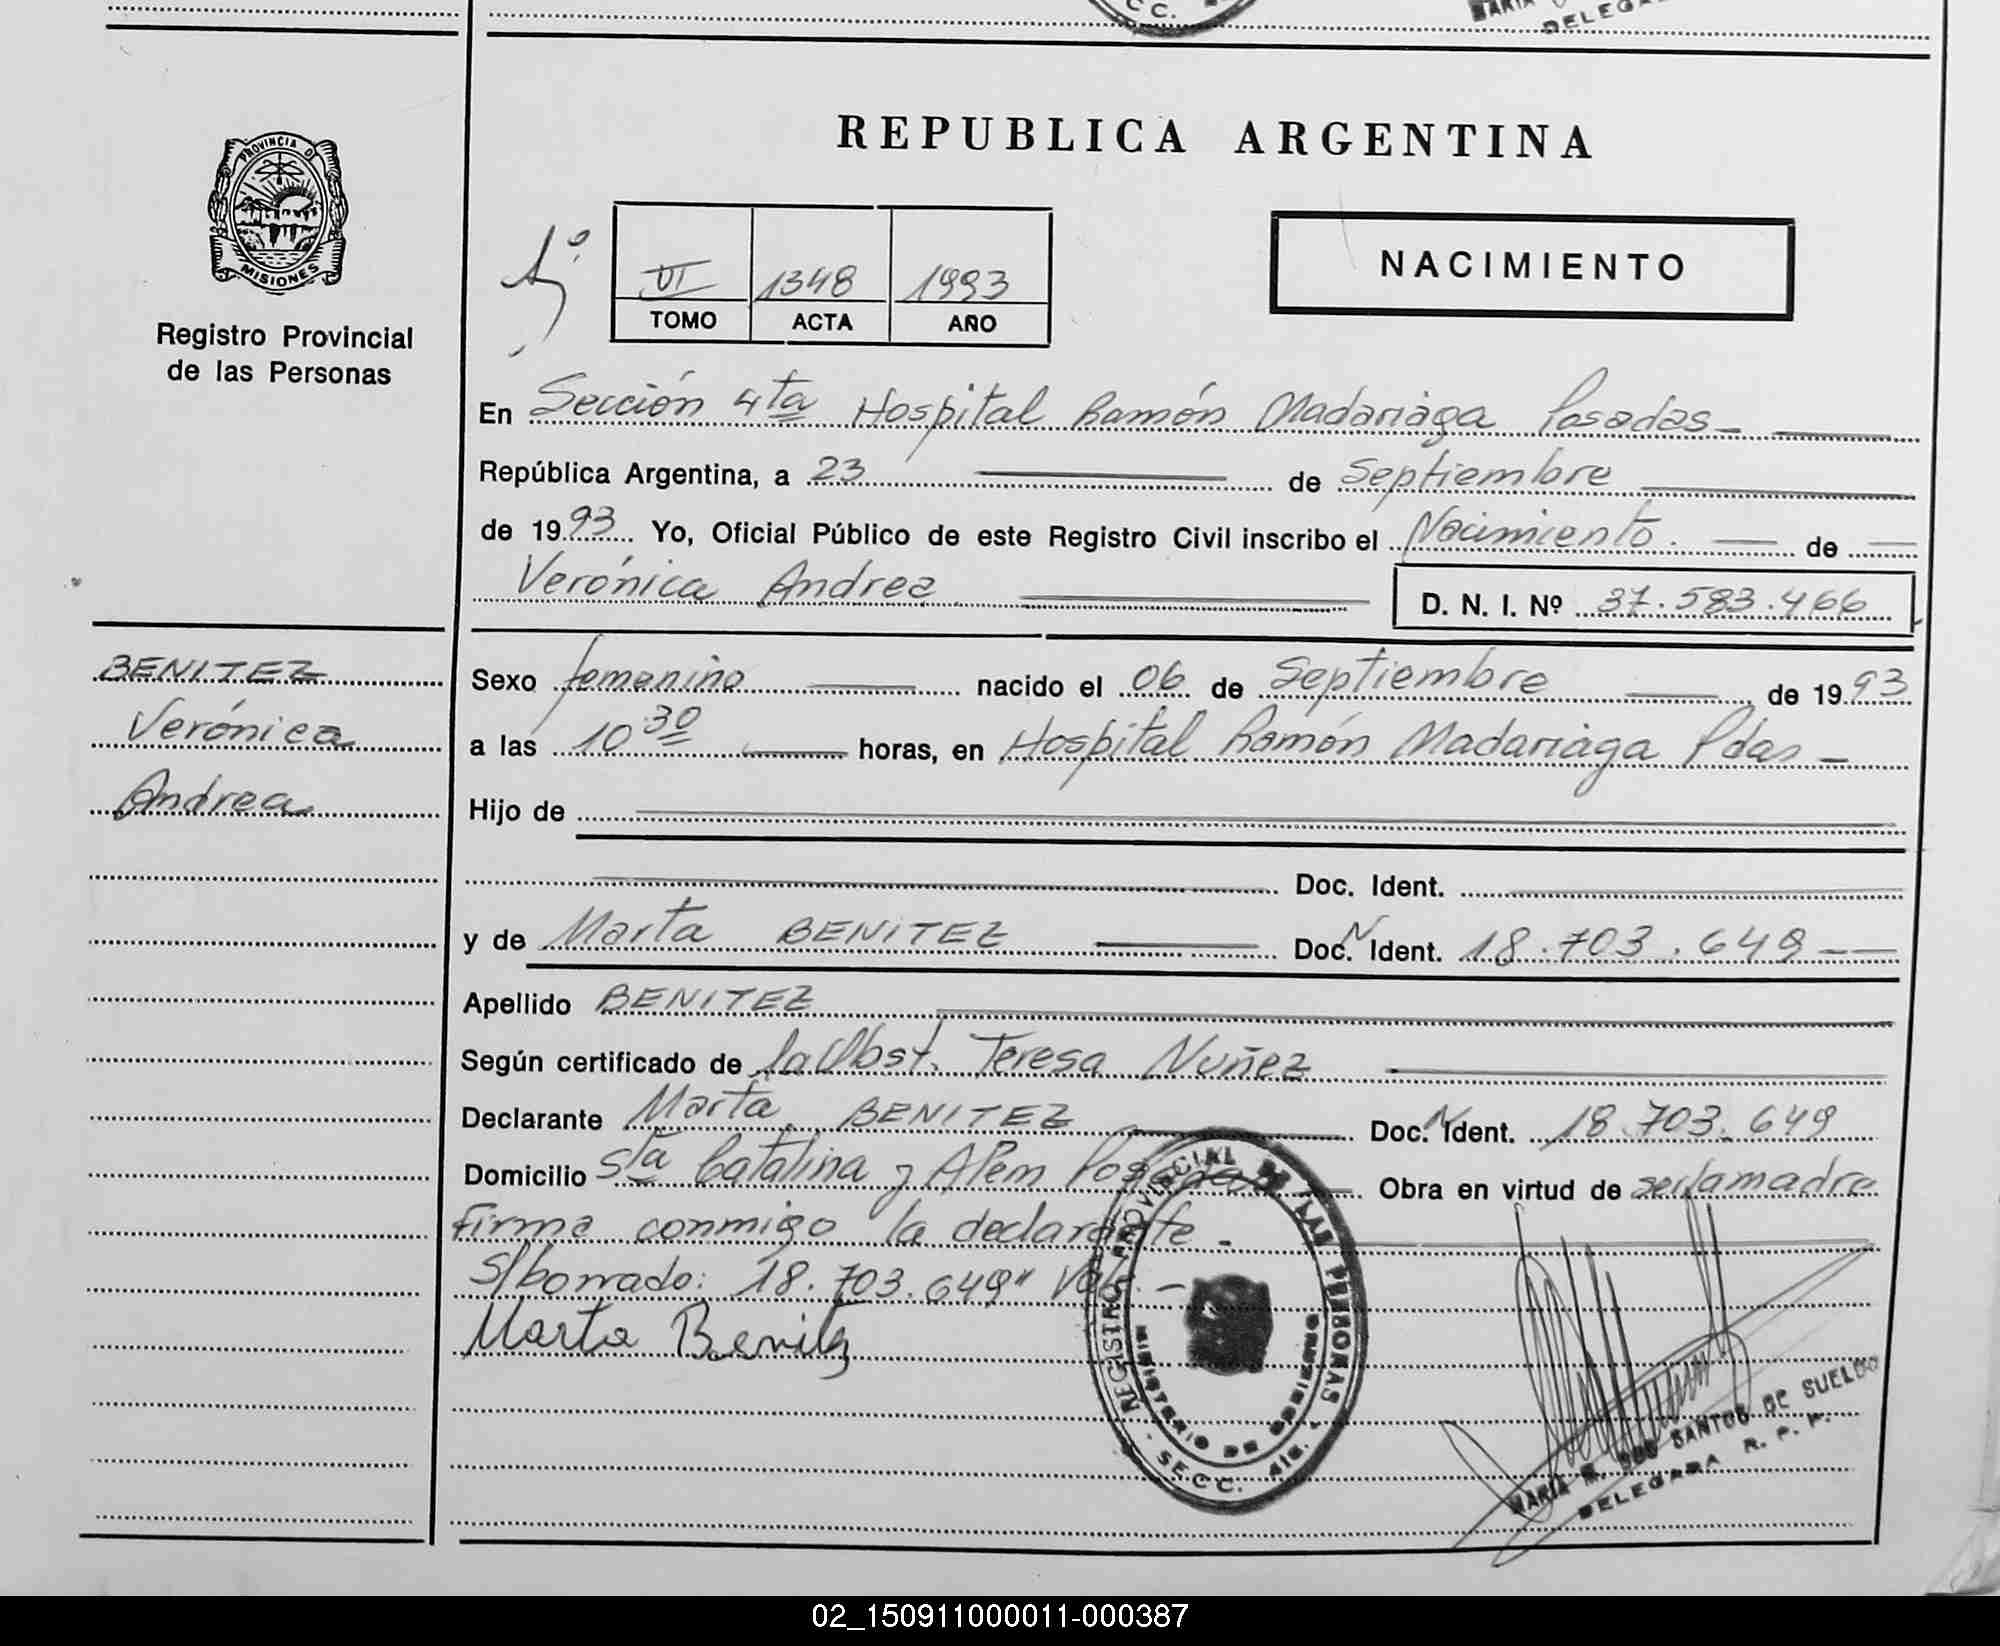 C C.
DELEGA
PROVINCIA D
MISIONES
Registro Provincial
de las Personas
REPUBLICA ARGENTINA
VI 1348 1993
TOMO ACTA AÑO
NACIMIENTO
En Sección 4ta Hospital Ramón Madariaga Posadas
República Argentina, a 23 de Septiembre
de 1993 Yo, Oficial Público de este Registro Civil inscribo el Nacimiento. de
Verónica Andrea D. N. I. Nº 37.583.466
BENITEZ
Verónica
Andrea
Sexo femenino nacido el 06 de Septiembre de 1993
a las 10 30 horas, en Hospital Ramón Madariaga Pdas
Hijo de
Doc. Ident.
y de Marta BENITEZ Doc. N Ident. 18.703.649
Apellido BENITEZ
Según certificado de la Obst. Teresa Nuñez
Declarante Marta BENITEZ Doc. N Ident. 18.703.649
Domicilio Sta Catalina y Alem Posadas Obra en virtud de ser la madre
Firma conmigo la declarante -
S/borrado: 18.703.649" Vale. -
Marta Benitez
REGISTRO PROVINCIAL DE LAS PERSONAS
MINISTERIO DE GOBIERNO
- SECC. 4ta. -
MARIA R. DOS SANTOS DE SUELDO
DELEGADA R. P. P.
02_150911000011-000387